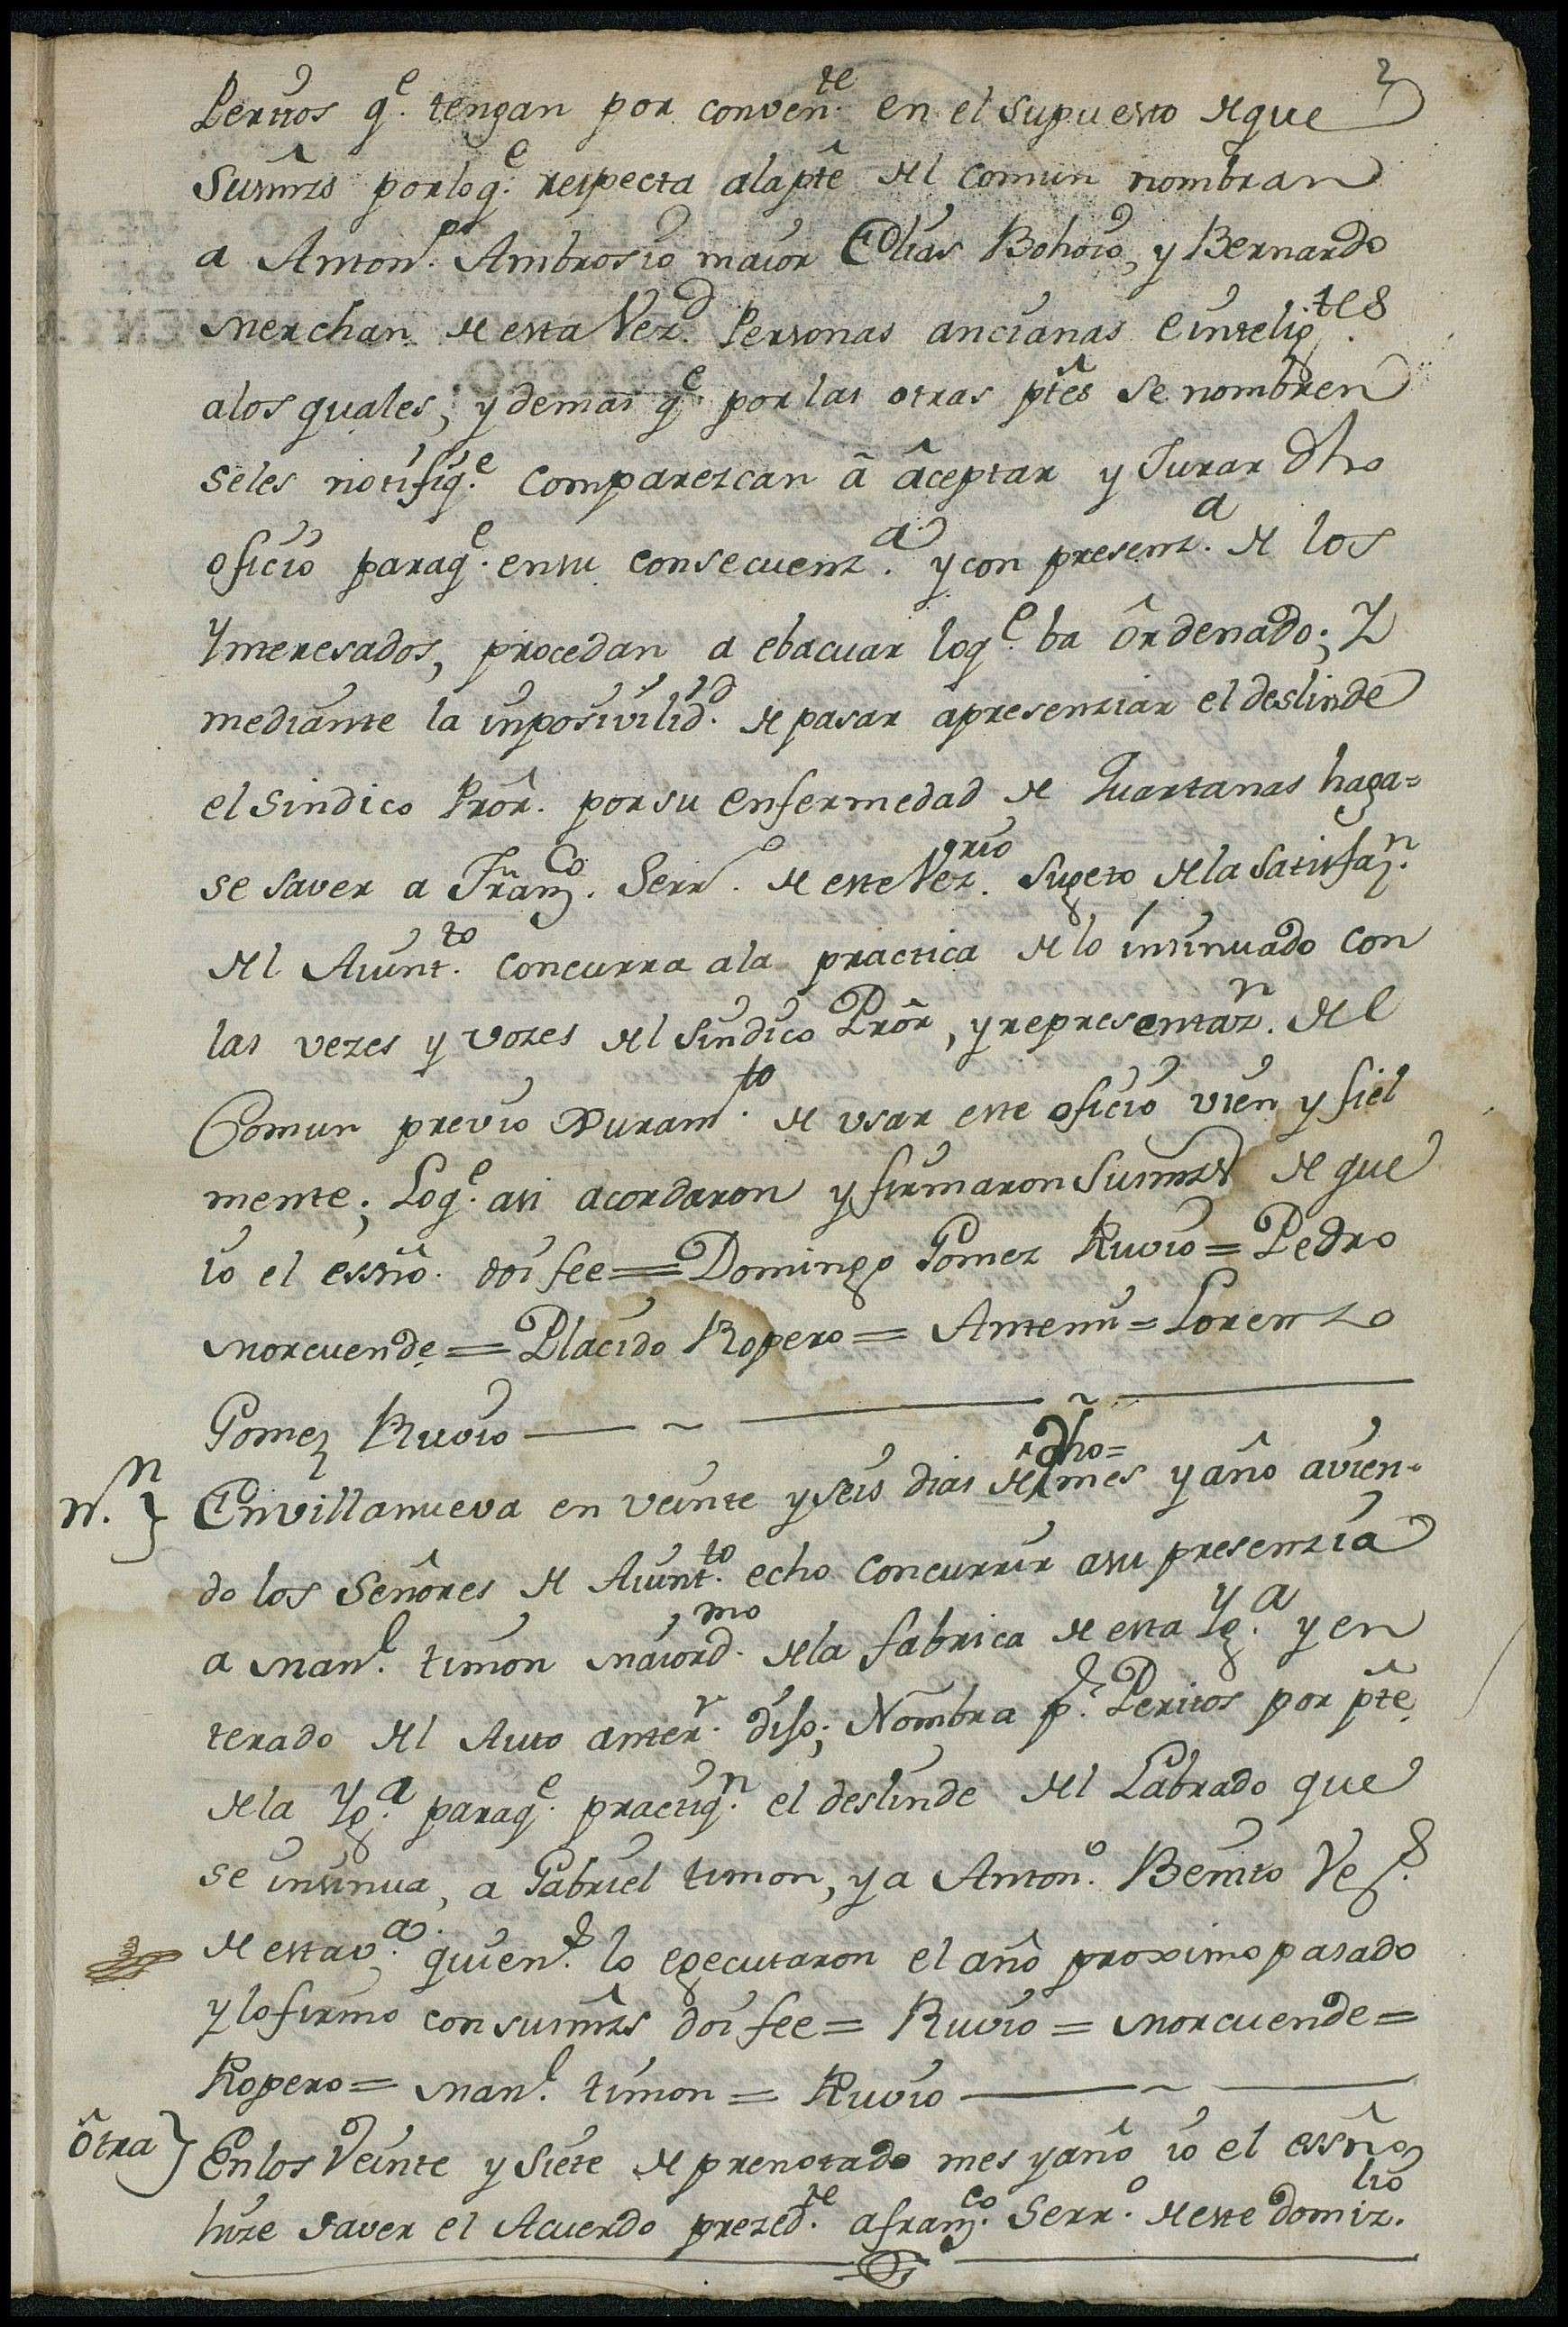 2
Peritos q.e tengan por conven.te en el supuesto de que
Susmrds porloq.e respecta alapte del comun nombran
a Anton.o Ambrosio maior Elias Bohoio, y Bernardo
Merchan de esta Vez.d Personas ancianas e intelig.tes
alos quales, y demas q.e por las otras ptes se nombren
seles notifiq.e comparezcan â âceptar y Jurar dho
oficio paraq.e ensu consecuenz.a y con presenz.a de los
Ynteresados, procedan a ebacuar loq.e ba ôrdenado; Y
mediante la inposivilid.d de pasar apresenziar el deslinde
el Sindico Prôr. por su enfermedad de Quartanas haga=
se saver a Franz.co Serr.o de este Vez.rio sugeto dela Satisfaz.n
del Aiunt.to concurra ala practica delo insinuado con
las vezes y vozes del Sindico Prôr, y representaz.n del
Comun previo Juram.to de usar este oficio vien y fiel
mente; Loq.e asi acordaron y firmaron Susmrds de que
io el essño. doi fee = Domingo Gomez Ruvio = Pedro
Morcuende = Placido Ropero = Antemi = Lorenzo
Gomez Ruvio
N.n } En villanueva en veinte y seis dias de dho= mes y año avien-
do los Señores de Aiunt.to echo concurrir asu presenzia
a Man.l timon maiord.mo dela fabrica de esta Yg.a y en
terado del Auto anter.r diso; Nombra p.r Peritos por pte
dela Yg.a paraq.e practiq.n el deslinde del Labrado que
se insinua, a Gabriel timon, y a Anton.o Benito Vez.s
de esta v.a quien.s lo egecutaron el año proximo pasado
y lo firmo con susmrds doi fee = Ruvio = Morcuende =
Ropero = Man.l timon = Ruvio
ôtra } En los Veinte y Siete de prenotado mes y año io el essño
hize saver el Acuerdo prezed.te a franz.co Serr.o de este domiz.lio